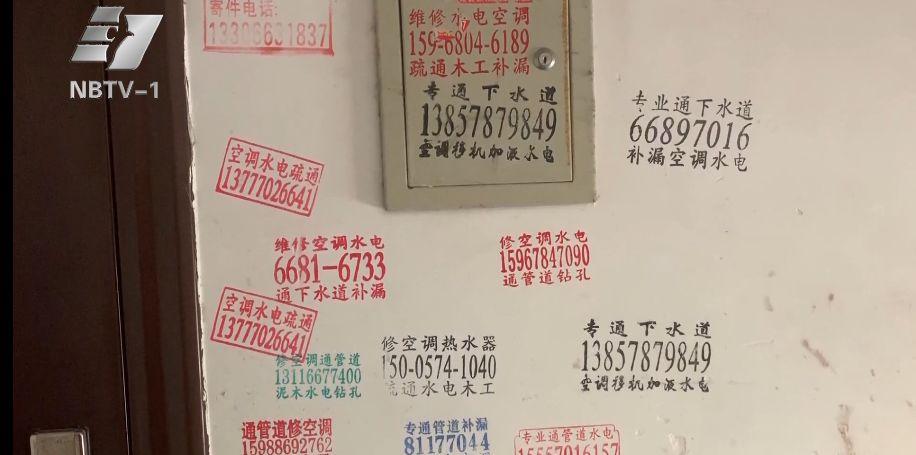 NBTV-1
寄件电话:
13306631837
维修水电空调
159-6804-6189
疏通木工补漏
专通下水道
13857879849
空调移机加液水电
专业通下水道
66897016
补漏空调水电
空调水电疏通
13777026641
维修空调水电
6681-6733
通下水道补漏
修空调水电
15967847090
通管道钻孔
空调水电疏通
13777026641
修空调通管道
13116677400
泥木水电钻孔
修空调热水器
150-0574-1040
疏通水电木工
专通下水道
13857879849
空调移机加液水电
通管道修空调
15988692762
专通管道补漏
81177044
专业通管道水电
15557016157